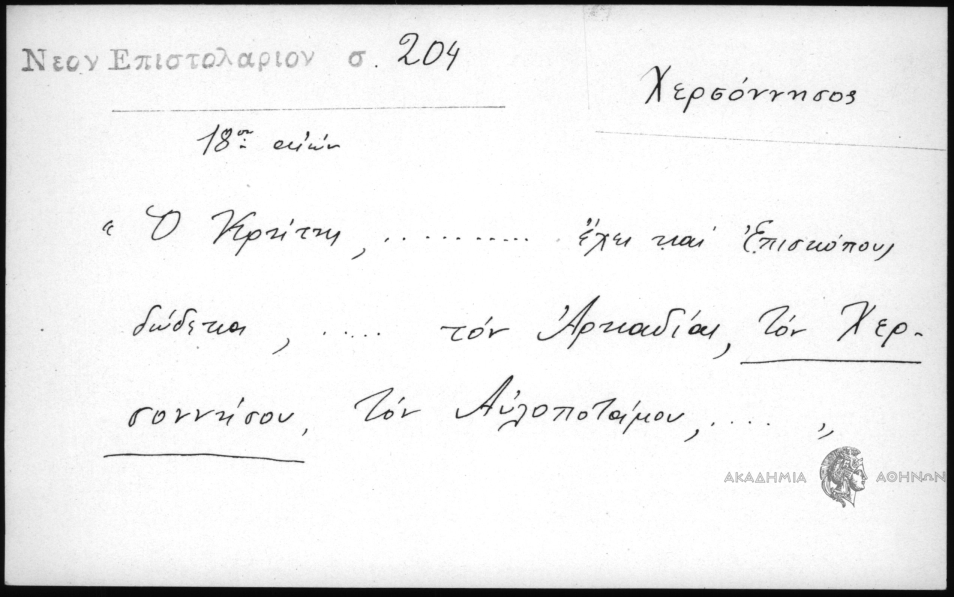 Νεον Επιστολαριον σ. 204
Χερσόννησος
18ου αἰών
“ Ὁ Κρήτης, ............ ἔχει καί Ἐπισκόπους
δώδεκα, .... τόν Ἀρκαδίας, τόν Χερ-
σοννήσου, τόν Αὐλοποτάμου, .... „
ΑΚΑΔΗΜΙΑ ΑΘΗΝΩΝ